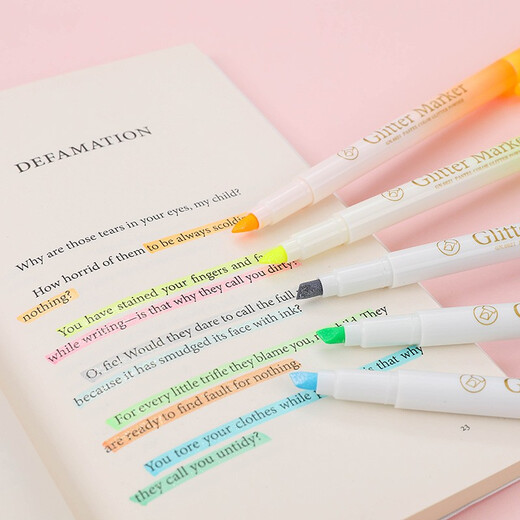 DEFAMATION
Why are those tears in your eyes, my child?
How horrid of them to be always scoldi
nothing?
You have stained your fingers and f
while writing—is that why they call you dirty?
O, fie! Would they dare to call the full
because it has smudged its face with ink?
For every little trifle they blame you, my child. They
are ready to find fault for nothing.
You tore your clothes while is that why
they call you untidy?
23
Glitter Marker
Glitter Marker
Glitt